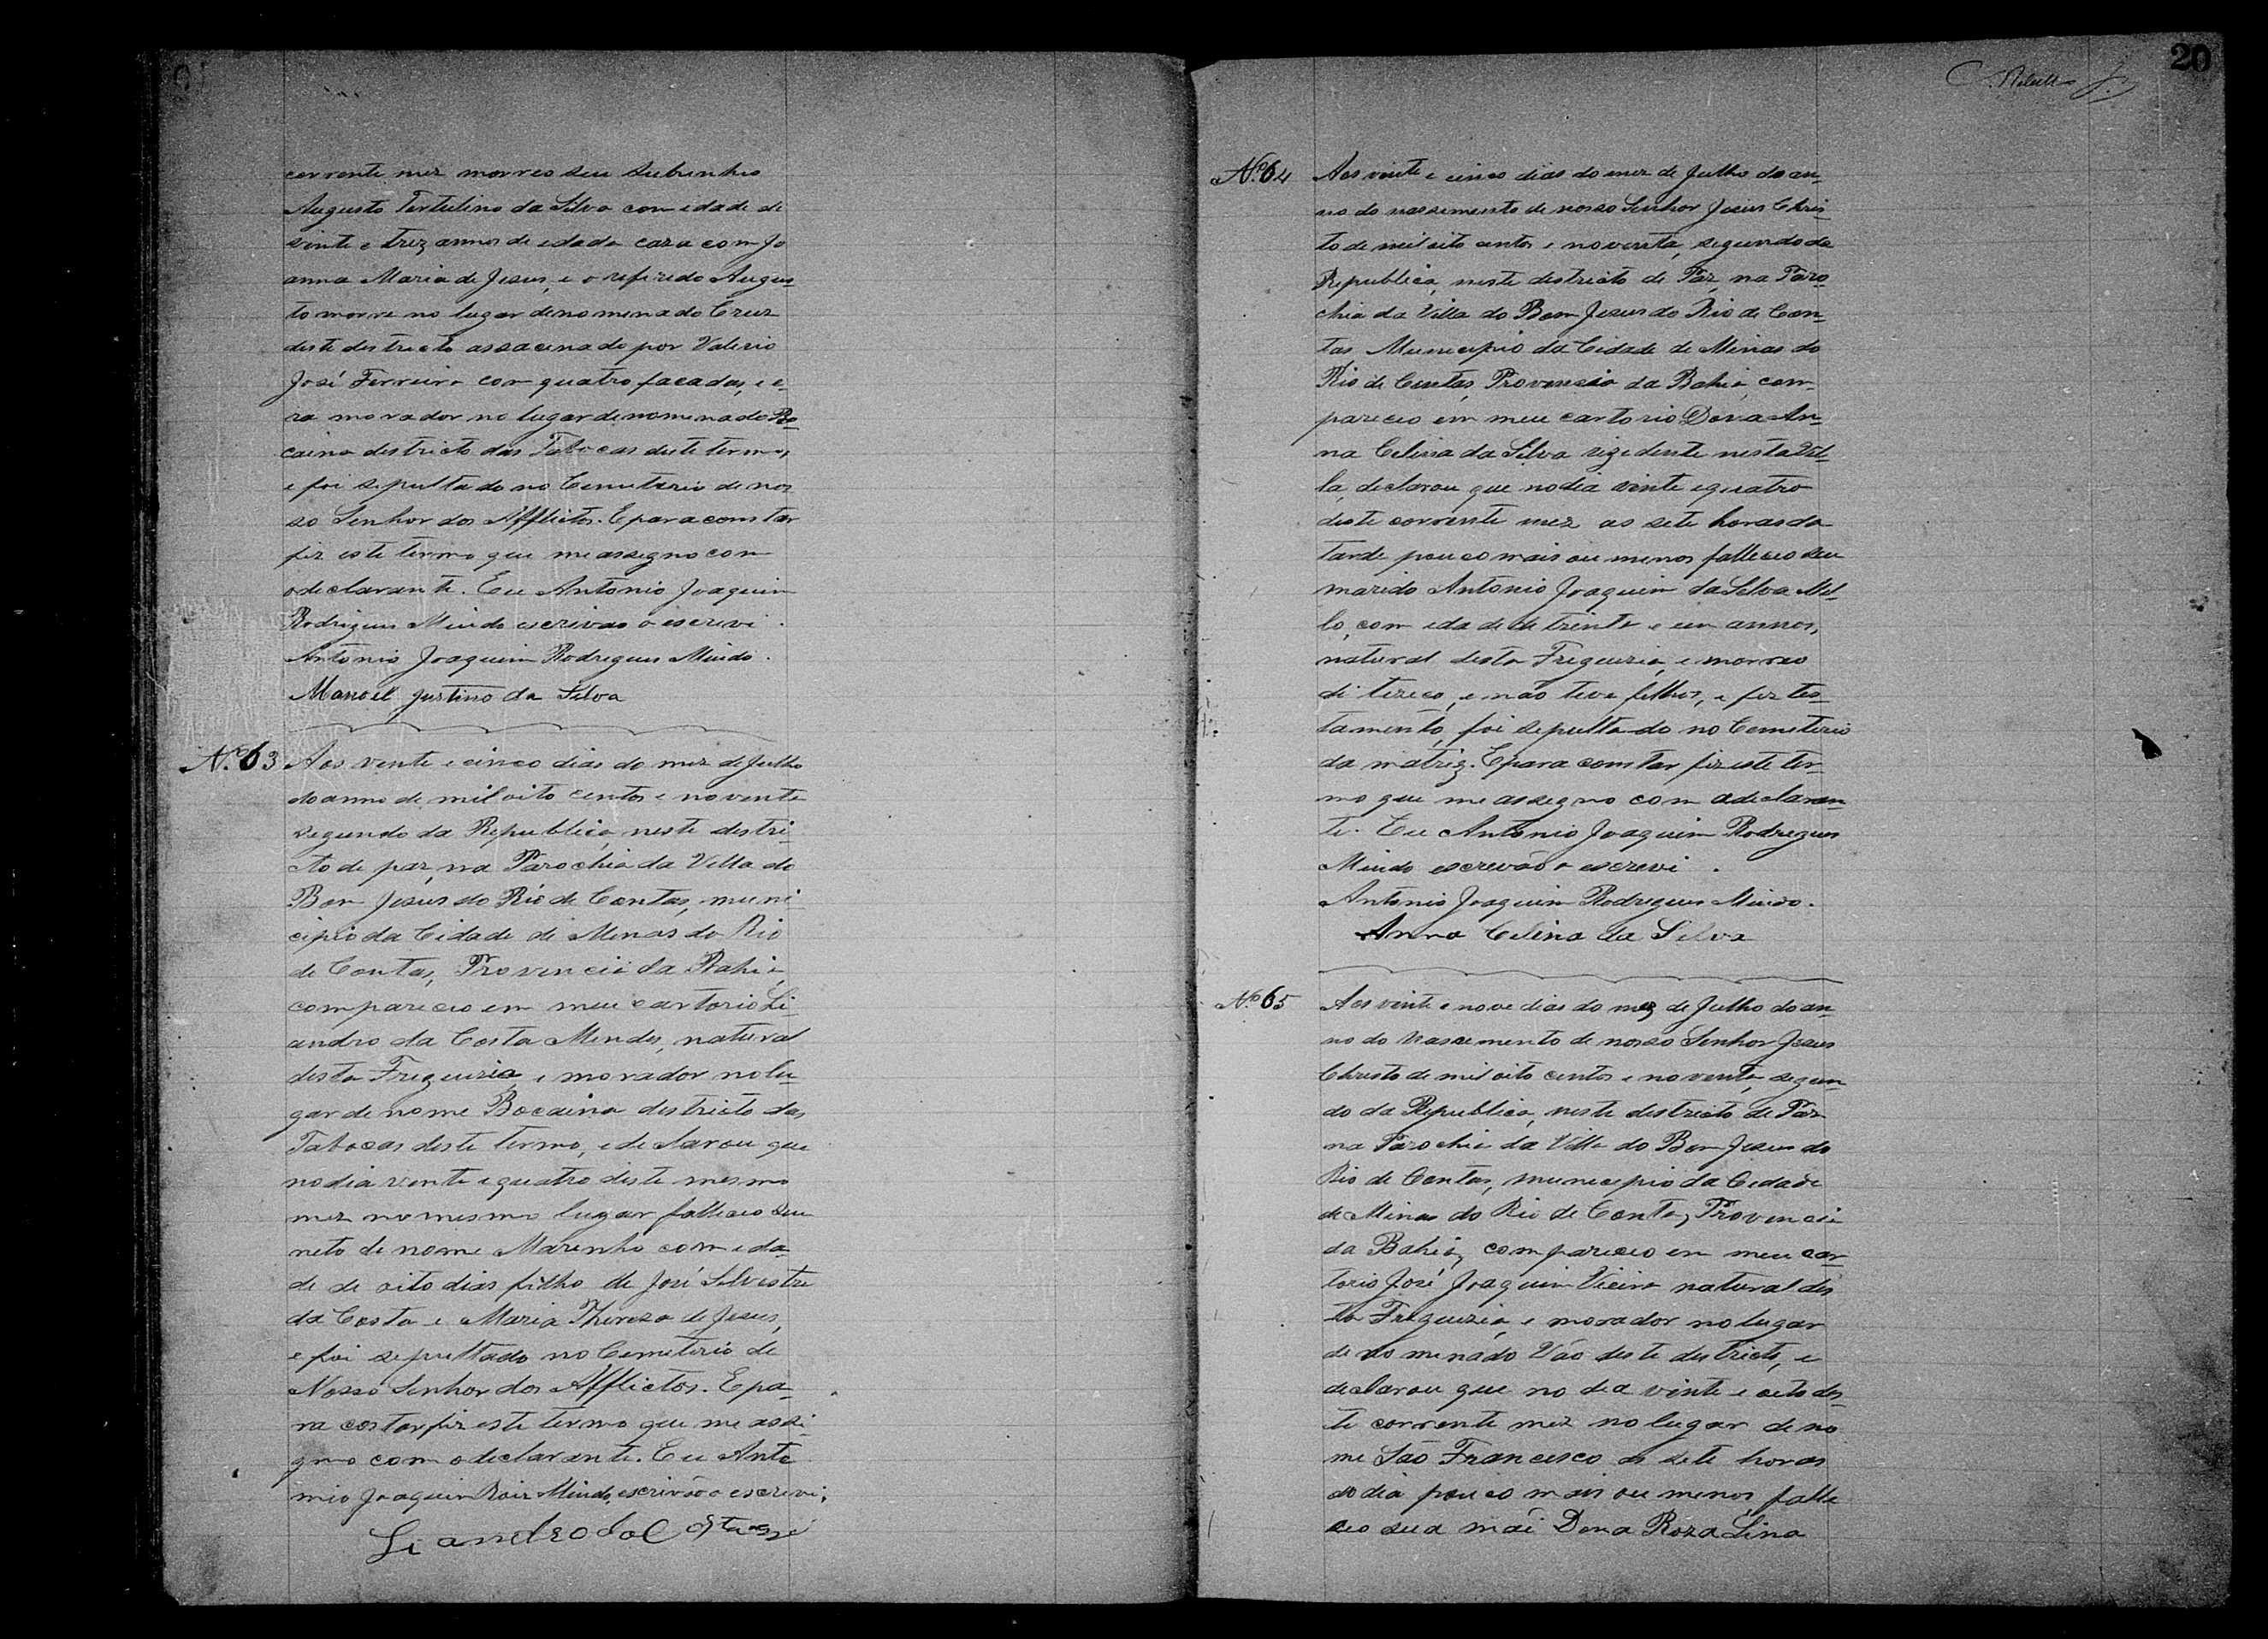 corrente mez morreo seu subrinho
Augusto Tertulino da Silva com idade de
vinte e trez annos de edade caza com Jo
anna Maria de Jesus, e o referido Augus
to morre no lugar denomenado Cruz
deste destricto assacenado por Valerio
José Ferreira com quatro facadas, e e
ra morador no lugar denomenado Bo
caina destricto das Tabocas deste termo,
e foi sepultado no Cemeterio de nos
so Senhor dos Afflictos. E para constar
fiz este termo que me assegno com
o declarante. Eu Antonio Joaquim
Rodrigues escrivão o escrevi.
Antonio Joaquim Rodrigues
Manoel Justino da Silva
Nº 63
Aos vente e cinco dias do mez de Julho
do anno de mil oito centos e novente
segundo da Republica, neste destri
cto de paz, na Parochia da Villa do
Bom Jesus do Rio de Contas, muni
cipio da Cidade de Menas do Rio
de Contas, Provencia da Bahia,
compareceo em meu cartorio Li
andro da Costa Mendes, natural
desta Freguezia e morador no lu
gar de nome Bocaina destricto das
Tabocas deste termo, e declarou que
no dia vente e quatro deste mesmo
mez no mesmo lugar falleceo seu
neto de nome Marenho com eda
de de oito dias filho de José Selvestre
da Costa e Maria Thereza de Jesus,
e foi sepultado no Cemeterio de
Nosso Senhor dos Afflictos. E pa
ra costar fiz este termo que me assi
gno com o declarante. Eu Anto
nio Joaquim Roiz escrivão o escrevi.
Liandro da Costa
20
Nº 64
Aos vinte e cinco dias do mez de Julho do an
no do nassemento de nosso Senhor Jesus Chris
to de mil oito centos e noventa, segundo da
Republica, neste destricto de Paz, na Paro
chia da Villa do Bom Jesus do Rio de Con
tas, Municipio da Cidade de Minas do
Rio de Contas, Provencia da Bahia, com
pareceo em meu cartorio Dona An
na Celina da Silva rezedente nesta Vil
la, declarou que no dia vinte e quatro
deste corrente mez as sete horas da
tarde pouco mais ou menos falleceo seu
marido Antonio Joaquim da Selva Mel
lo, com edade de trinta e um annos,
natural desta Freguezia, e morreo
de e não teve filhos, e fez tes
tamento, foi sepultado no Cemeterio
da matriz. E para constar fiz este ter
mo que me assegno com a declaran
te. Eu Antonio Joaquim Rodregues
escrevão o escrevi.
Antonio Joaquim Rodregues
Anna Celina da Silva
Nº 65
Aos vinte e nove dias do mez de Julho do an
no do nascemento de nosso Senhor Jesus
Christo de mil oito centos e noventa, segun
do da Republica, neste destricto de Paz
na Parochia da Villa do Bom Jesus do
Rio de Contas, municipio da Cedade
de Minas do Rio de Contas, Provencia
da Bahia, compareceo em meu car
torio José Joaquim Vieira natural des
ta Freguezia, e morador no lugar
denomenado Vão deste destricto, e
declarou que no dia vinte e oito des
te corrente mez no lugar de no
me São Francisco as sete horas
do dia pouco mais ou menos falle
ceo sua mãi Dona Roza Lina